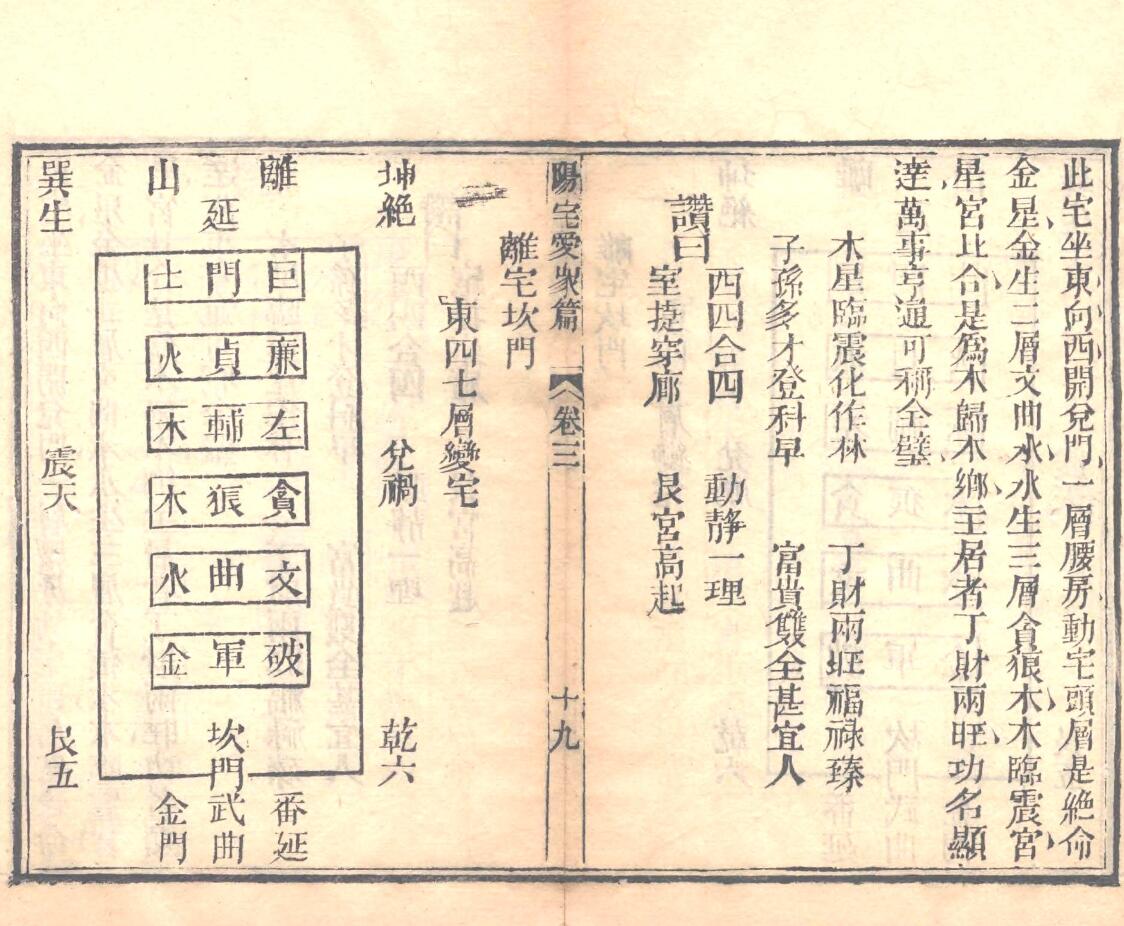 此宅坐東向西開兌門一層腰房動宅頭層是絶命
金星金生二層文曲水水生三層貪狼木木臨震宮
星宮比合是爲木歸木鄉主居者丁財兩旺功名顯
達萬事亨通可稱全璧
木星臨震化作林　丁財兩旺福祿臻
子孫多才登科早　富貴雙全甚宜人
讚曰
西四合四　動靜一理
室捷穿廊　艮宮高起
陽宅愛眾篇　卷三　十九
離宅坎門
東四七層變宅
坤絶　兌禍　乾六
離　巨　廉　左　貪　文　破　番延
延　門　貞　輔　狼　曲　軍　坎門武曲
山　土　火　木　木　水　金　金門
巽生　震天　艮五